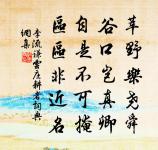 莘野樂堯舜
谷口豈真卿
自是不可掩
區區非近名
李流謙雲庵耕者詞典
網集